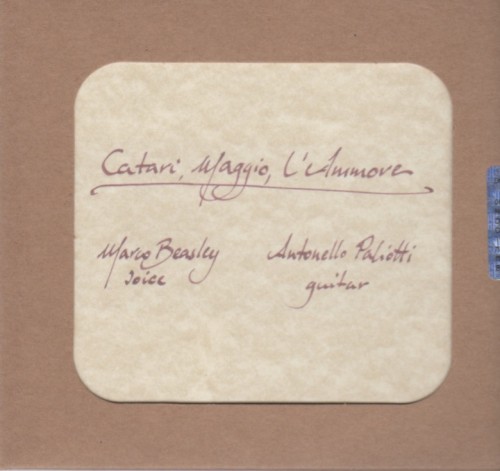 Catarì, Maggio, L'Ammore
Marco Beasley Antonello Paliotti
voice guitar